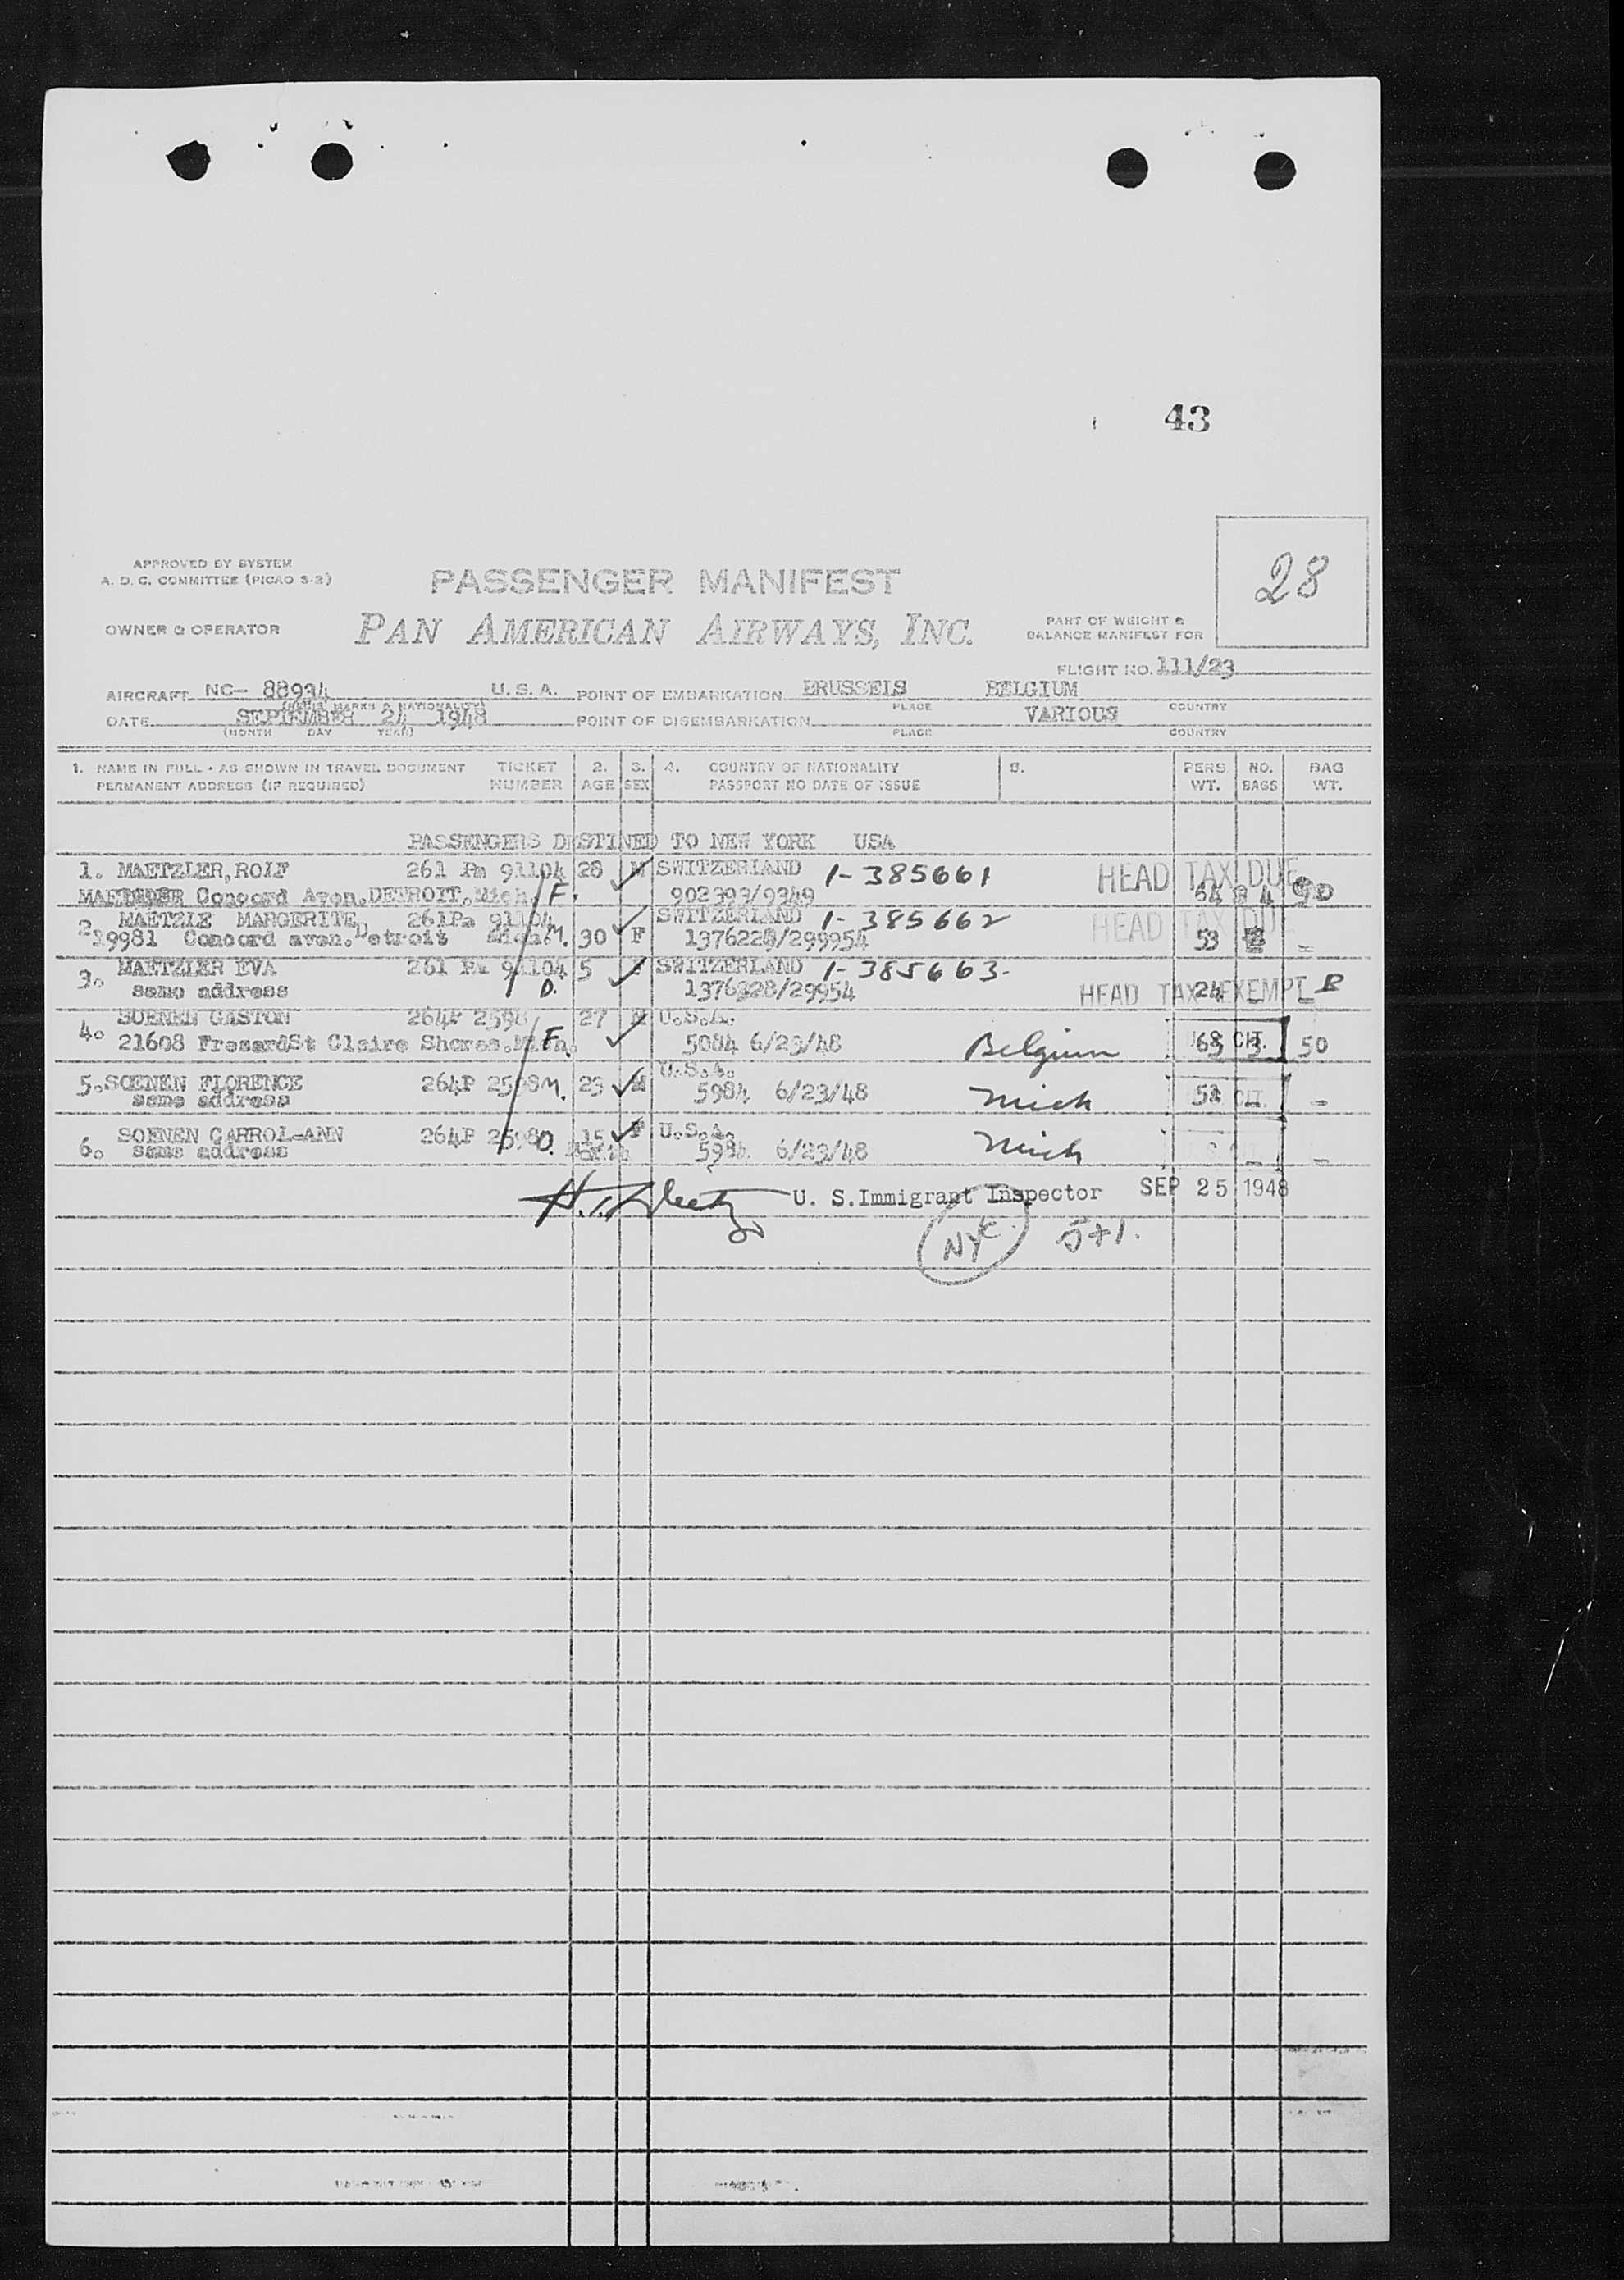 43
28
APPROVED BY SYSTEM
A. D. C. COMMITTEE (PICAO S-2)
PASSENGER MANIFEST
OWNER & OPERATOR
PAN AMERICAN AIRWAYS, INC.
PART OF WEIGHT &
BALANCE MANIFEST FOR
FLIGHT NO. 111/23
AIRCRAFT NC- 88934 U. S. A. POINT OF EMBARKATION BRUSSELS BELGIUM
(REGIS. MARKS & NATIONALITY) PLACE COUNTRY
DATE SEPTEMBER 24 1948 POINT OF DISEMBARKATION VARIOUS
(MONTH DAY YEAR) PLACE COUNTRY
1. NAME IN FULL - AS SHOWN IN TRAVEL DOCUMENT TICKET 2. 3. 4. COUNTRY OF NATIONALITY 5. PERS. NO. BAG
PERMANENT ADDRESS (IF REQUIRED) NUMBER AGE SEX PASSPORT NO DATE OF ISSUE WT. BAGS WT.
PASSENGERS DESTINED TO NEW YORK USA
1. MAETZLER, ROLF 261 Pa 91104 28 M SWITZERLAND 1-385661 HEAD TAX DUE
Concord Aven. DETROIT. Mich. F. 902393/9349 64 8 4 90
2. MAETZLE MARGERITE 261Pa 91104 SWITZERLAND 1-385662 HEAD TAX DUE
19981 Concord aven. Detroit M. 30 F 1376228/299954 53 -
3. MAETZLER EVA 261 Pa 91104 5 F SWITZERLAND 1-385663-
same address D. 1376328/29954 HEAD TAX EXEMPT B 24 -
4. SOENEN GASTON 264P 2598 27 M U.S.A.
21608 Fresard St Claire Shores. Mich. F. 5084 6/23/48 Belgium 68 3 50
5. SOENEN FLORENCE 264P 2598 M. 23 M U.S.A.
same address 5984 6/23/48 Mich 52 CIT. -
6. SOENEN CARROL-ANN 264P 2598 D. 15 F U.S.A.
same address 5984 6/23/48 Mich -
U. S. Immigrant Inspector SEP 25 1948
NYC 5+1.